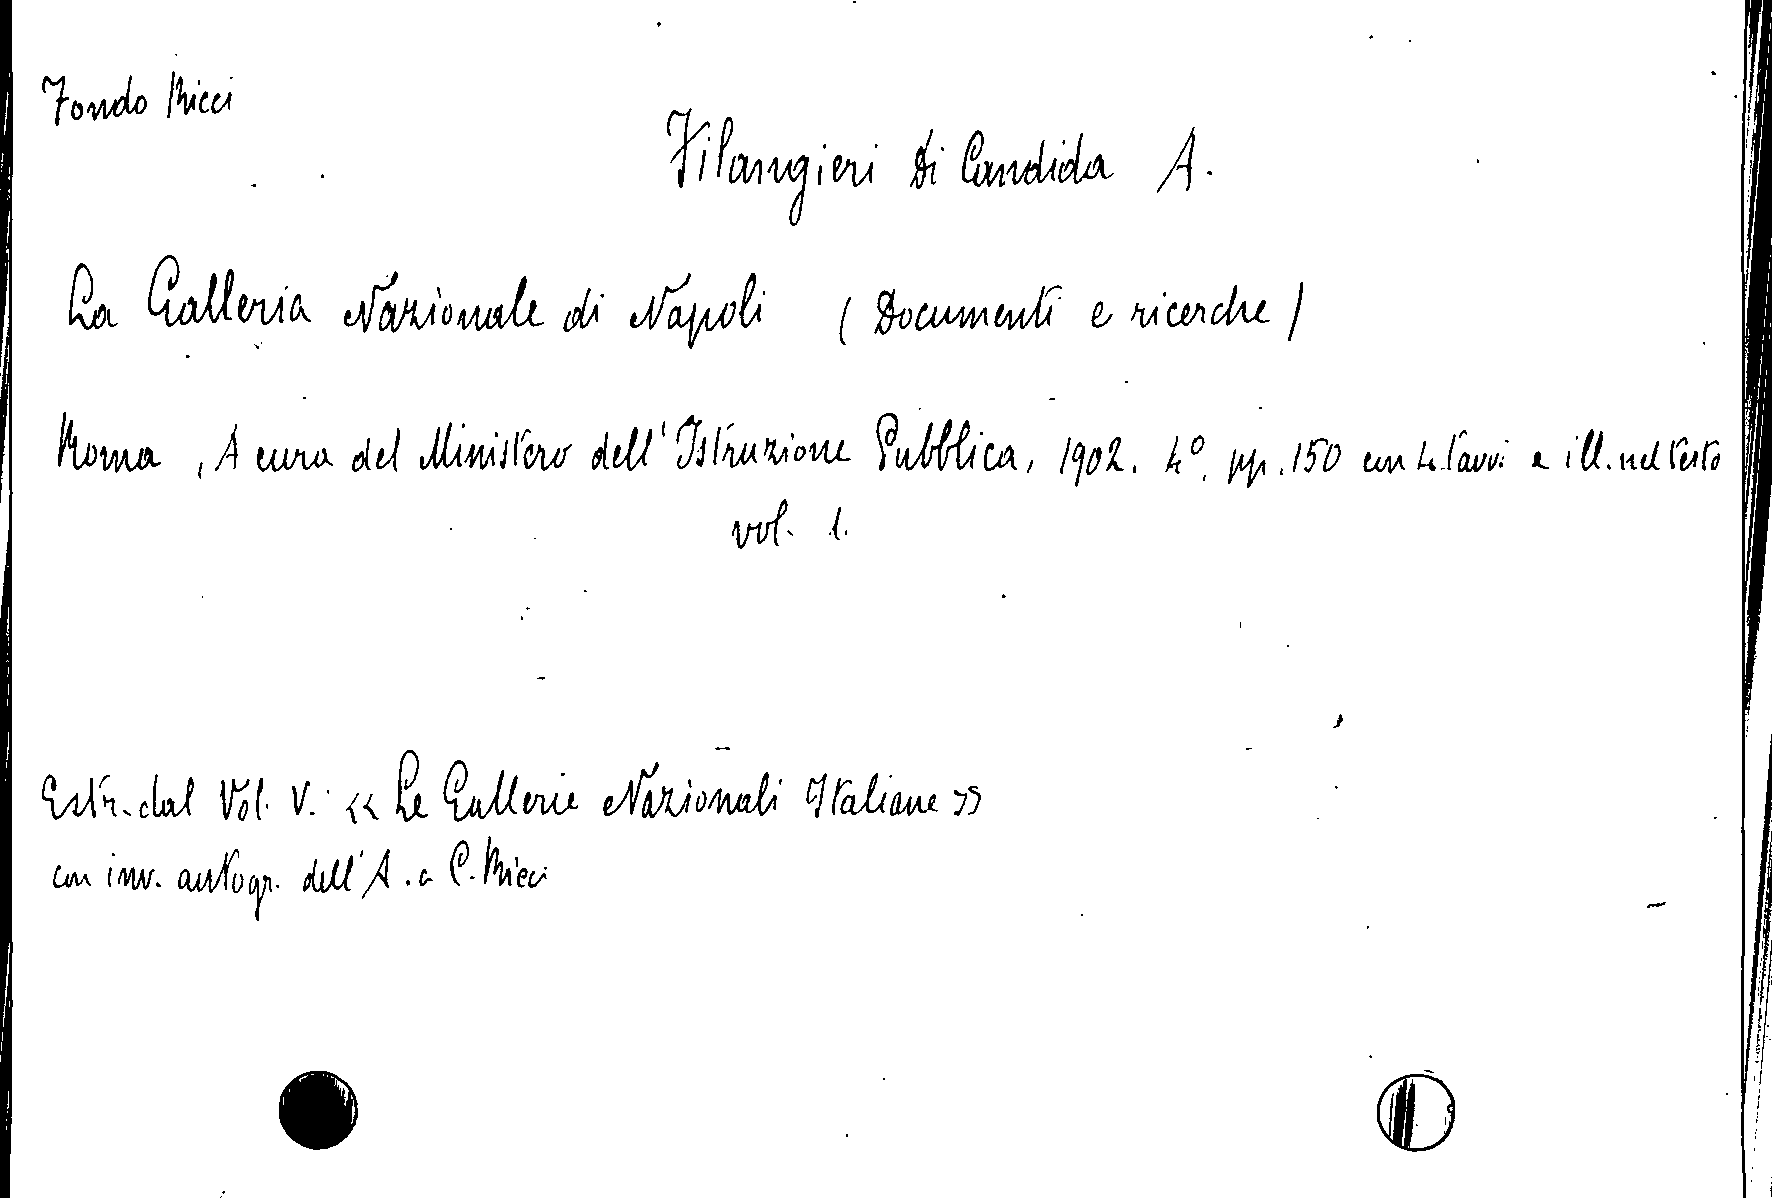 Fondo Ricci
Filangieri Di Candida A.
La Galleria Nazionale di Napoli (Documenti e ricerche)
Roma, A cura del Ministero dell'Istruzione Pubblica, 1902. 4°. pp. 150 con 4 tavv. e ill. nel testo
vol. 1.
Estr. dal Vol. V. << Le Gallerie Nazionali Italiane >>
con inv. autogr. dell'A. a C. Ricci